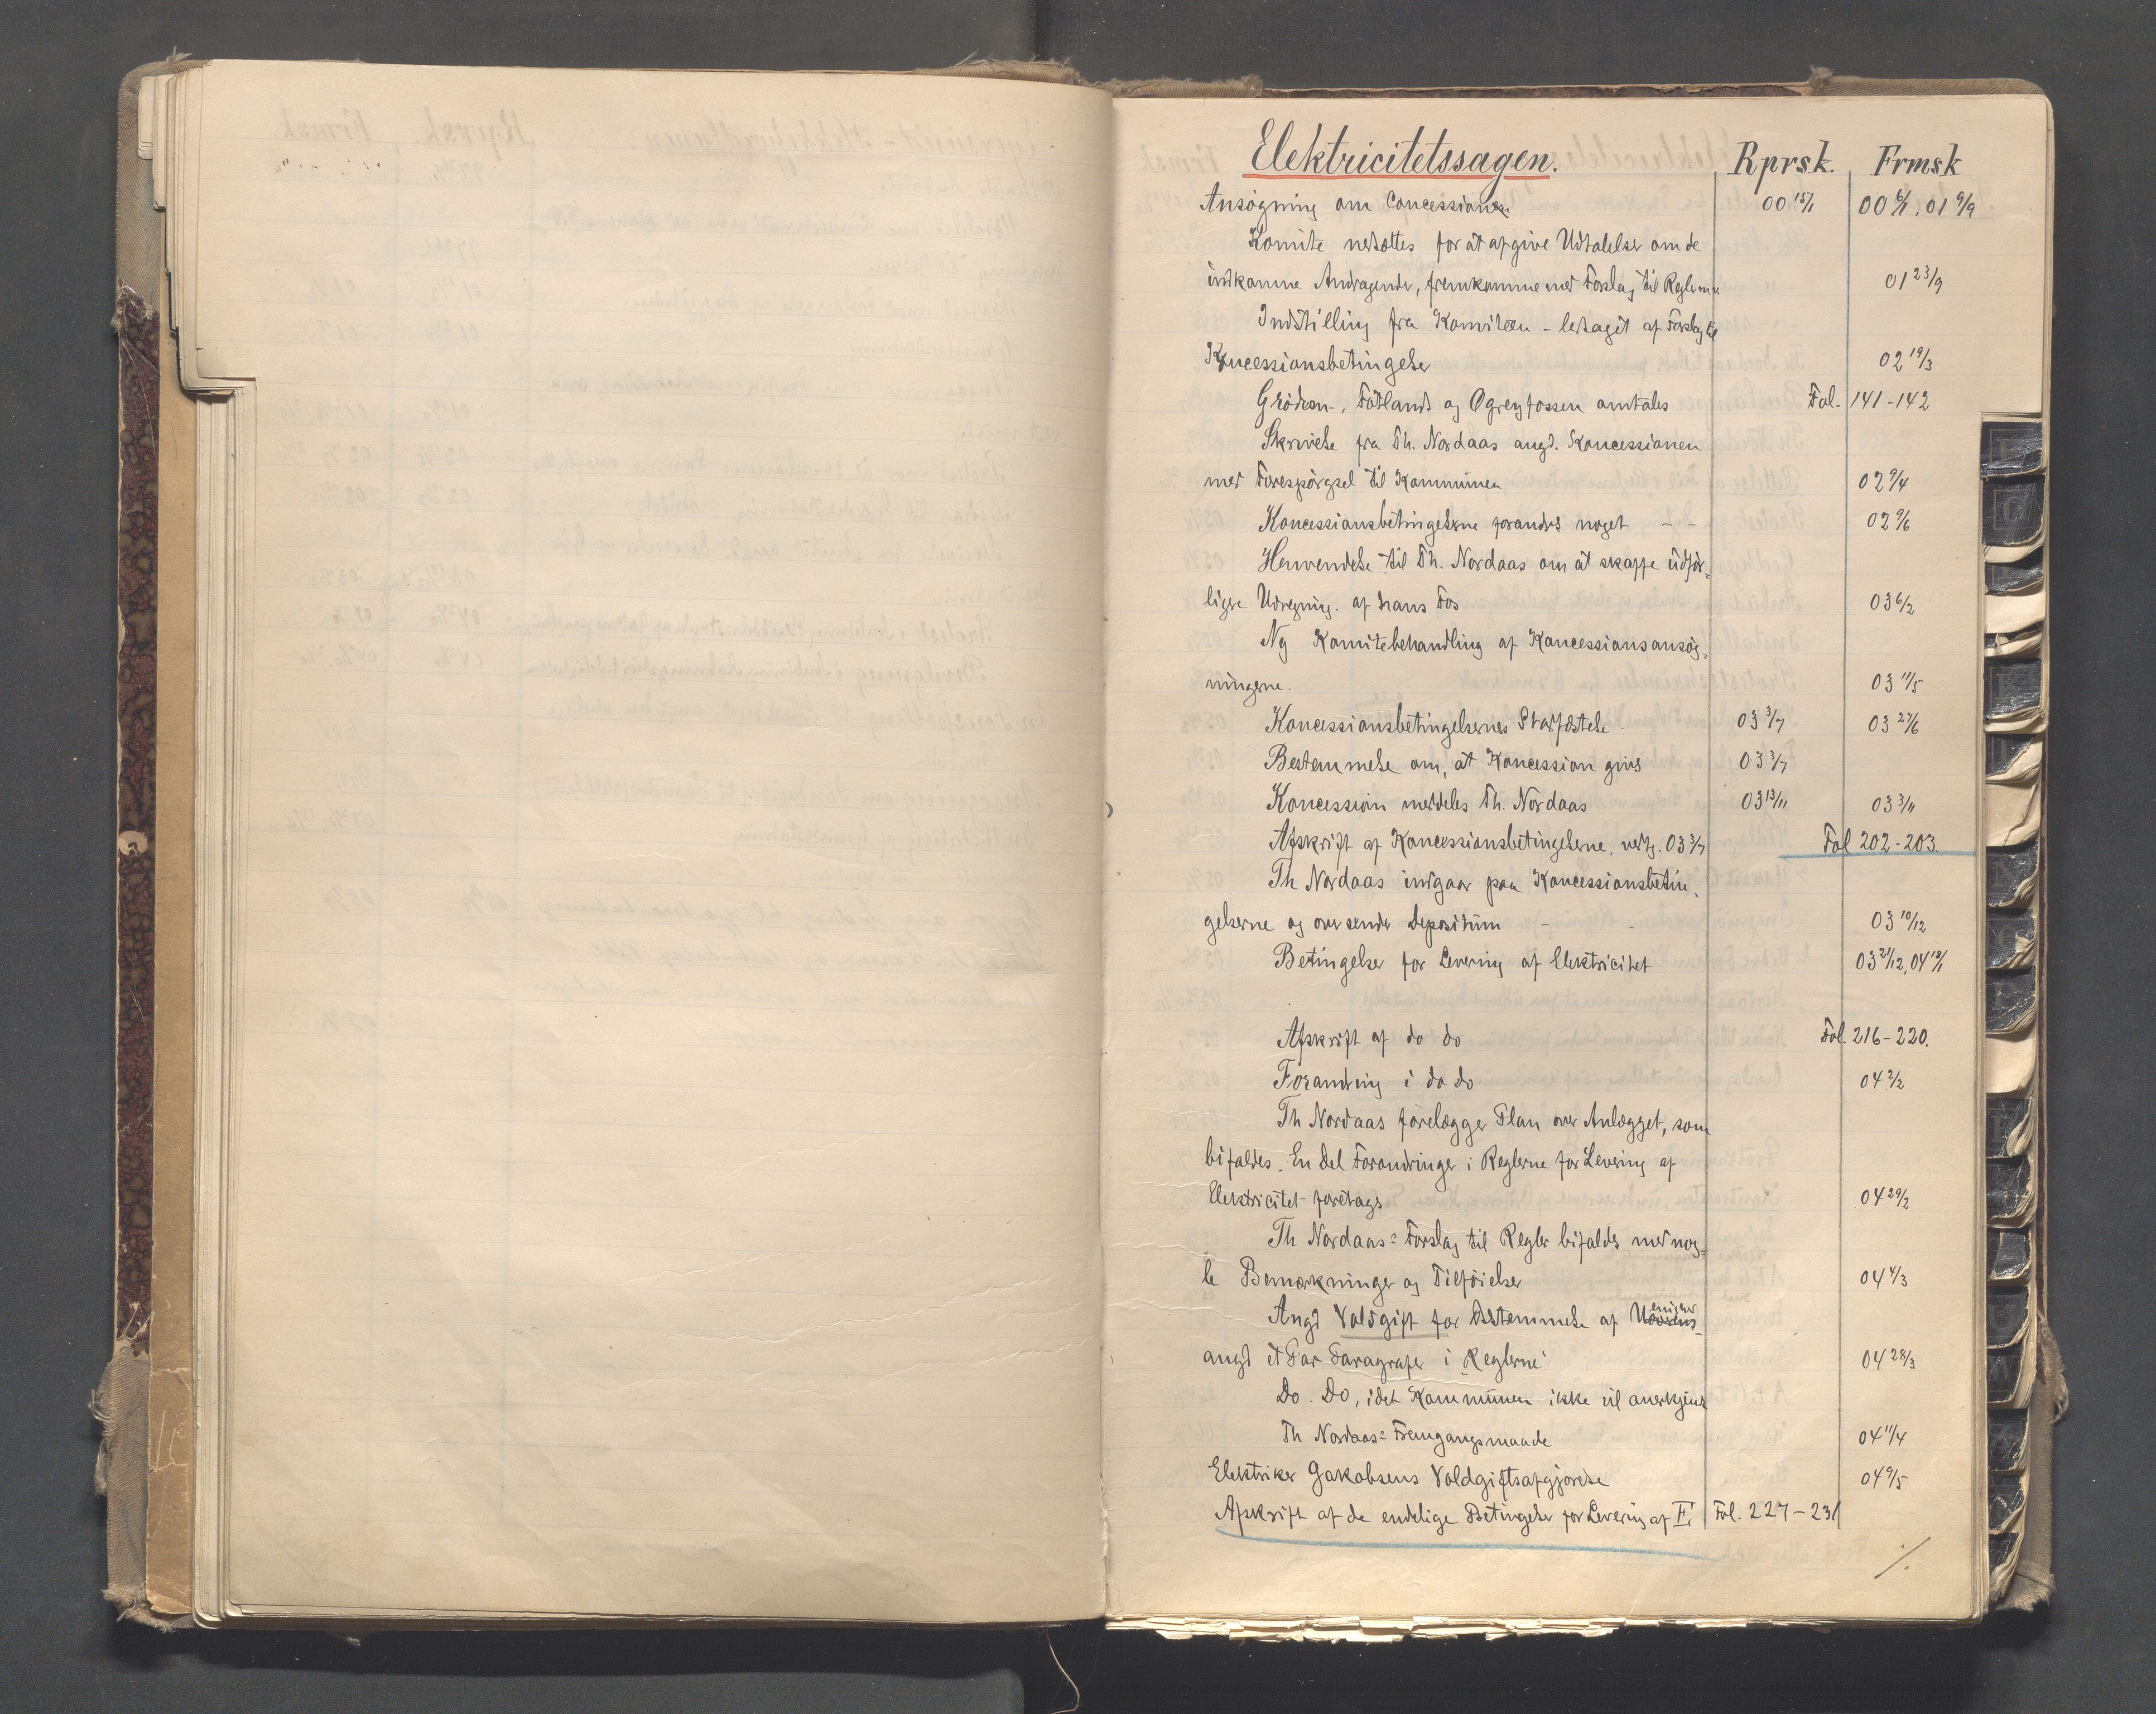 Elektricitetssagen. Rprsk. Frmsk
Ansøgning om Concessionen 00 15/1 00 6/1, 01 9/9
Komite nedsættes for at afgive Udtalelse om de
indkomne Andragender, fremkomme med Forslag til Reglement 01 23/9
Indstilling fra Komiteen - ledsaget af Forslag til
Koncessionsbetingelser 02 19/3
Grødem-, Fotlands og Ogreyfossen omtales Fol. 141-142
Skrivelse fra Th. Nordaas angd. Koncessionen
med Forespørgsel til Kommunen 02 9/4
Koncessionsbetingelserne forandres noget - - 02 9/6
Henvendelse til Th. Nordaas om at skaffe udfør-
ligere Udregning. af hans Fos 03 6/2
Ny Komitebehandling af Koncessionsansøg-
ningerne. 03 11/5
Koncessionsbetingelsernes Stadfæstelse. 03 3/7 03 27/6
Bestemmelse om, at Koncession gives 03 3/7
Koncession meddeles Th. Nordaas 03 13/11 03 3/11
Afskrift af Koncessionsbetingelserne, vedtg. 03 3/7 Fol 202-203.
Th Nordaas indgaar paa Koncessionsbetin-
gelserne og oversender Depositum - 03 10/12
Betingelser for Levering af Elektricitet 03 21/12, 04 12/1
Afskrift af do do Fol. 216-220.
Forandring i do do 04 2/2
Th Nordaas forelægger Plan over Anlægget, som
bifaldes. En Del Forandringer i Reglerne for Levering af
Elektricitet foretages 04 29/2
Th Nordaas= Forslag til Regler bifaldes med nog-
le Bemærkninger og Tilføielser 04 4/3
Angd Voldgift for Bestemmelse af Uenigher
angd et Par Paragrafer i Reglerne 04 28/3
Do. Do, idet Kommunen ikke vil anerkjende
Th Nordaas= Fremgangsmaade 04 11/4
Elektriker Jakobsens Voldgiftsafgjørelse 04 9/5
Afskrift af de endelige Betingelser for Levering af E. Fol. 227-231
./.